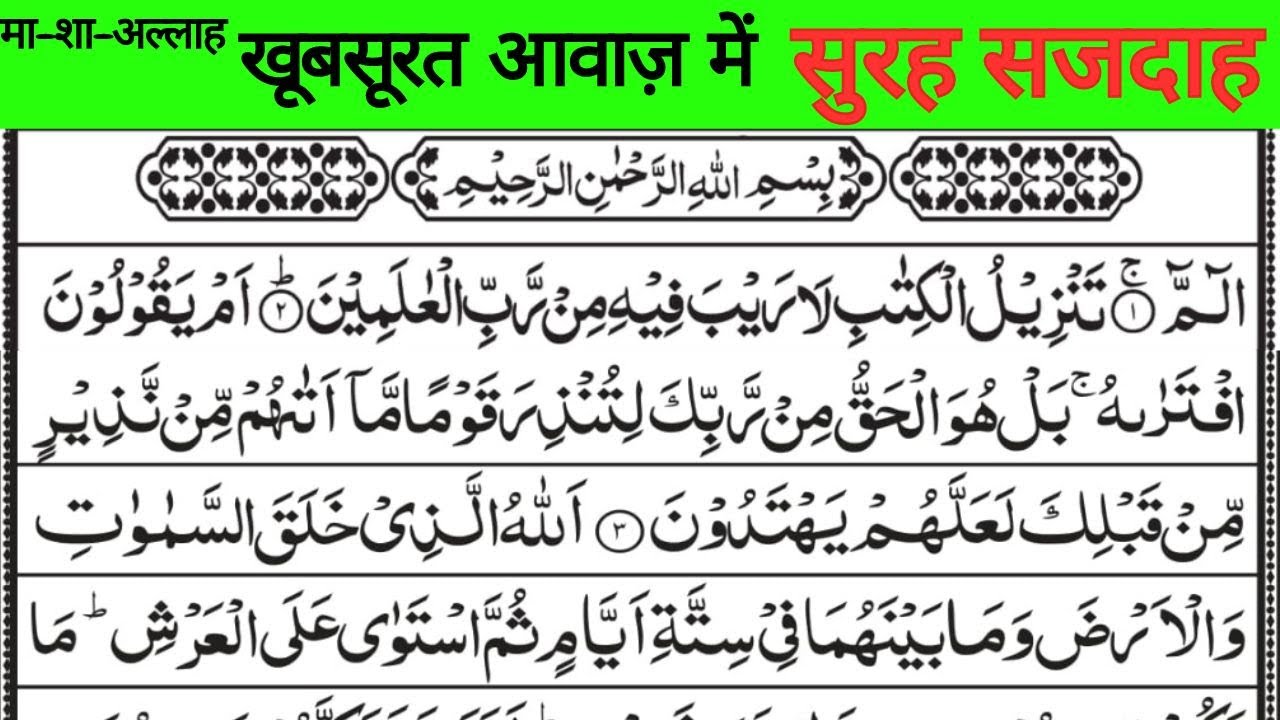 मा-शा-अल्लाह खूबसूरत आवाज़ में सुरह सजदाह
بِسْمِ اللهِ الرَّحْمٰنِ الرَّحِيْمِ
الٓمّٓ ۚ﴿۱﴾ تَنْزِيْلُ الْكِتٰبِ لَا رَيْبَ فِيْهِ مِنْ رَّبِّ الْعٰلَمِيْنَ ؕ﴿۲﴾ اَمْ يَقُوْلُوْنَ
افْتَرٰىهُ ۚ بَلْ هُوَ الْحَقُّ مِنْ رَّبِّكَ لِتُنْذِرَ قَوْمًا مَّاۤ اَتٰىهُمْ مِّنْ نَّذِيْرٍ
مِّنْ قَبْلِكَ لَعَلَّهُمْ يَهْتَدُوْنَ ﴿۳﴾ اَللّٰهُ الَّذِيْ خَلَقَ السَّمٰوٰتِ
وَالْاَرْضَ وَمَا بَيْنَهُمَا فِيْ سِتَّةِ اَيَّامٍ ثُمَّ اسْتَوٰى عَلَى الْعَرْشِ ؕ مَا